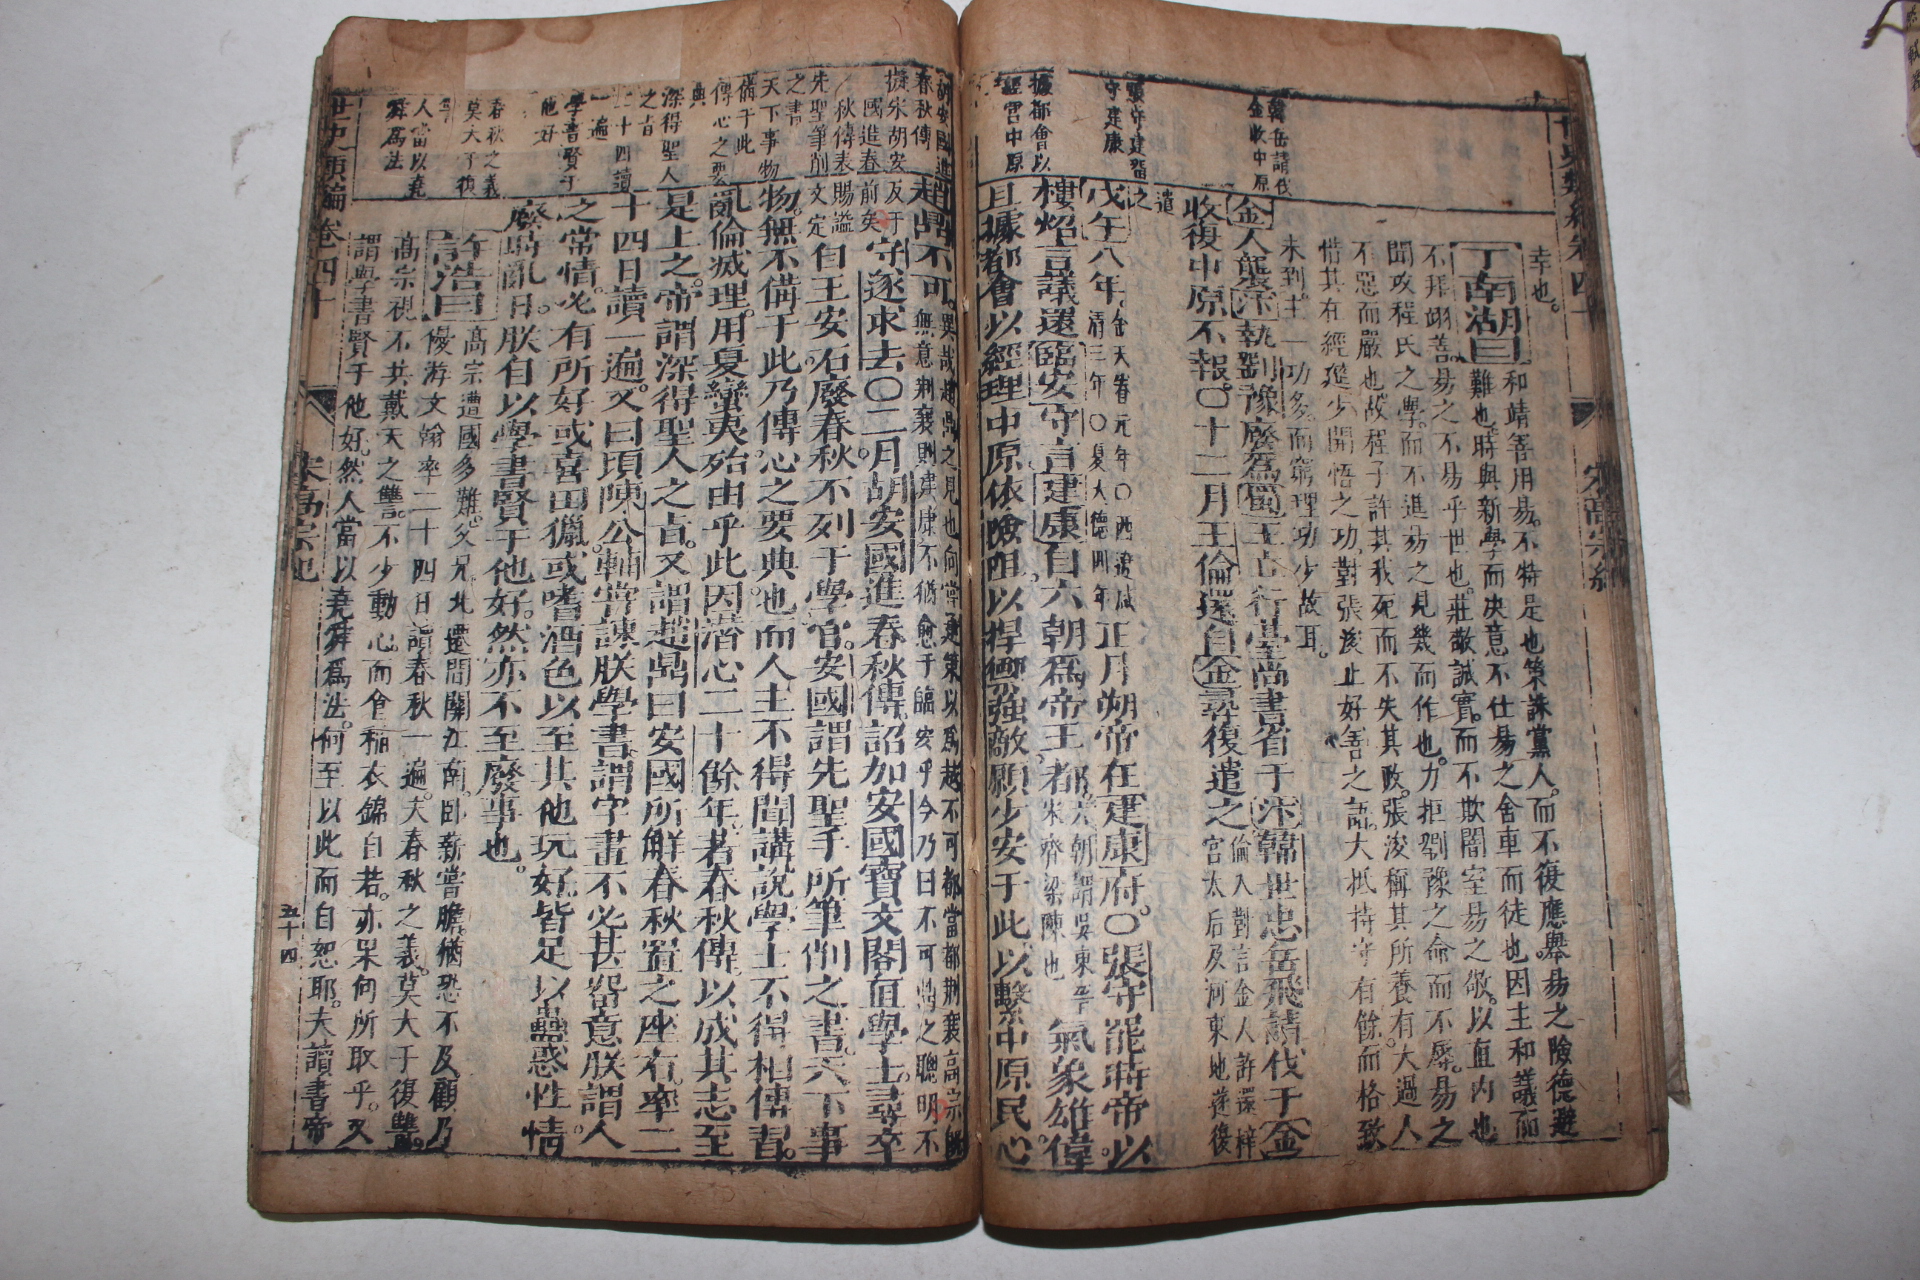 幸也。
丁南湖曰
和靖善用易。不特是也策誅黨人。而不復應舉。易之險德避
難也。時與新學而決意不仕。易之舍車而徒也。因主和議而
不拜翊善。易之不易乎世也。莊敬誠實。而不欺闇室。易之敬。以直內也
聞攻程氏之學。而不進。易之見幾而作也。力拒劉豫之命而不辱。易之
不惡而嚴也。故程子許其我死而不失其政。張浚稱其所養有大過人
惜其在經筵少開悟之功。對張浚止好善之語。大抵持守有餘而格致
未到。主一功多。而窮理功少故耳。
金人襲汴執劉豫廢爲蜀王。立行臺尚書省于汴韓世忠岳飛請伐于金
收復中原不報。〇十二月王倫還自金尋復遣之
倫入對言金人許還梓
宮太后及河東地遂復
遣
之
戊午八年
金天眷元年〇西遼咸
清三年〇夏大德四年
正月朔帝在建康府。〇張守罷時帝以
樓炤言議還臨安守言建康自六朝爲帝王都。
六朝謂吳東晉
宋齊梁陳也
氣象雄偉。
且據都會以經理中原。依險阻以捍禦強敵。願少安于此。以繫中原民心
韓岳請伐
金收中原
張守建留
守建康
據都會以
經宮中原
趙鼎不可。
異哉趙鼎之見也。向嘗建策以爲越不可都當都荊襄高宗
無意荊襄則建康不猶愈于臨安乎今乃曰不可鼎之聰明不
及于
前矣
守遂求去〇二月。胡安國進春秋傳。詔加安國寶文閣直學士。尋卒
賜謚
文定
自王安石廢春秋不列于學官。安國謂先聖手所筆削之書。天下事
物。無不備于此。乃傳心之要典也。而人主不得聞講說。學士不得相傳習。
亂倫滅理。用夏蠻夷。殆由乎此。因潛心二十餘年。著春秋傳。以成其志。至
是上之。帝謂深得聖人之旨。又謂趙鼎曰安國所解春秋。置之座右。率二
十四日讀一遍。又曰頃陳公輔嘗諫朕學書。謂字畫不必甚留意。朕謂人
之常情。必有所好。或喜田獵。或嗜酒色。以至其他玩好。皆足以蠱惑性情。
廢時亂日。朕自以學書賢于他好。然亦不至廢事也。
許浩曰
高宗遭國多難。父兄北遷。間關江南。臥薪嘗膽。猶恐不及。顧乃
優游文翰率二十四日讀春秋一遍。夫春秋之義。莫大于復讐。
高宗視不共戴天之讐。不少動心。而會稲衣錦自若。亦果何所取乎。又
謂學書賢于他好。然人當以堯舜爲法。何至以此而自恕耶。夫讀書帝
胡安國進
春秋傳
擬宋胡安
國進春
秋傳表
先聖筆削
之書
天下事物
備于此
傳心之要
典
深得聖人
之旨
二十四讀
一遍
學書賢于
他好
春秋之義
莫大于復
人當以堯
舜爲法
世史類編卷四十
宋高宗紀
五十四